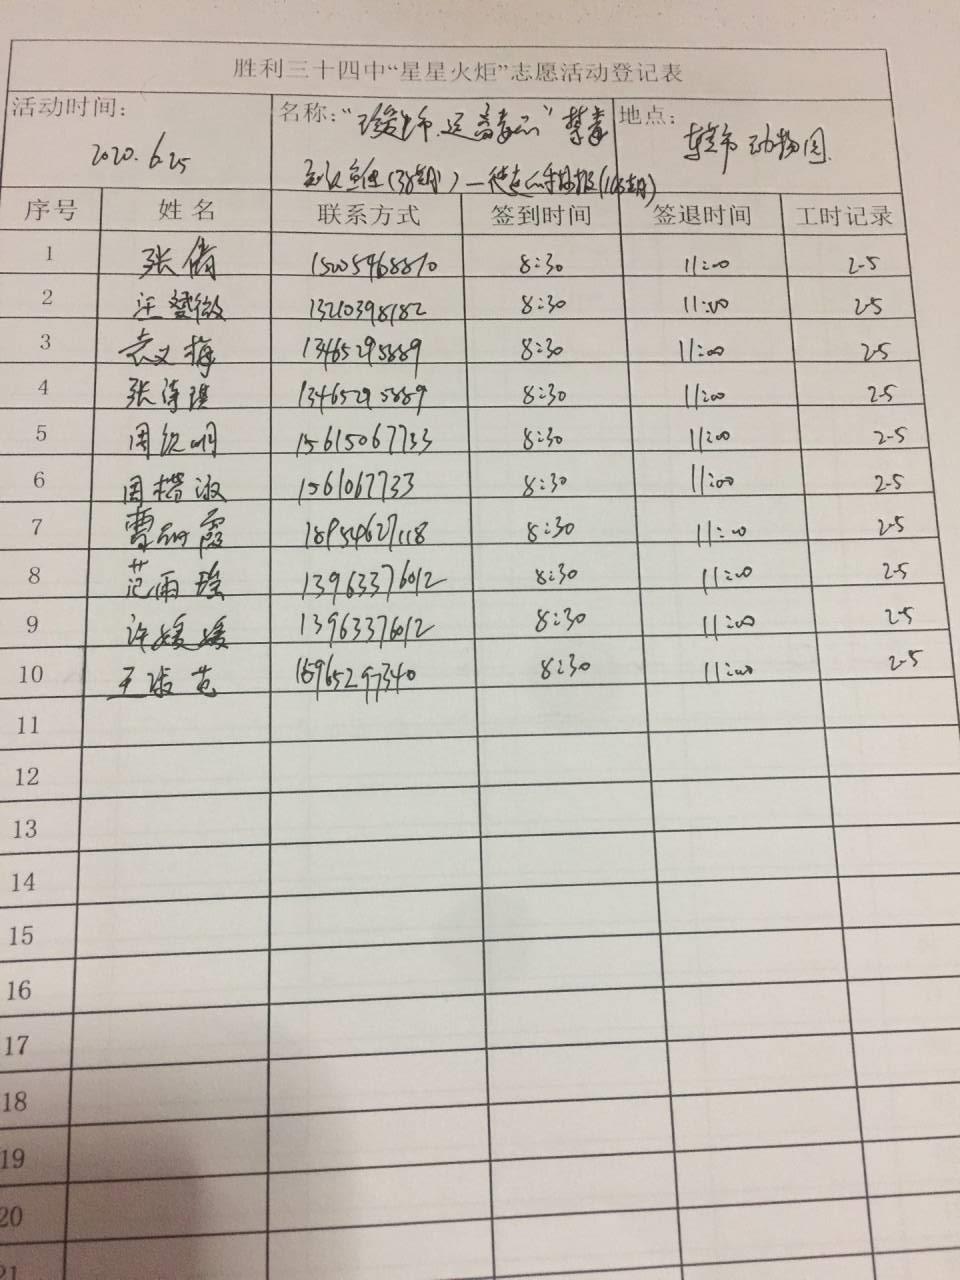 胜利三十四中“星星火炬”志愿活动登记表
活动时间： 名称：“珍爱生命.远离毒品”禁毒 地点：
2020.6.25 动物园
序号 姓名 联系方式 签到时间 签退时间 工时记录
1 张倩 15005468810 8:30 11:00 2.5
2 汪 微 13210398182 8:30 11:00 2.5
3 袁义梅 13465295889 8:30 11:00 2.5
4 张涛琪 13465295889 8:30 11:00 2.5
5 周 明 15615067733 8:30 11:00 2.5
6 周楷淑 1561067733 8:30 11:00 2.5
7 曹丽霞 18954627118 8:30 11:00 2.5
8 范雨 13963376012 8:30 11:00 2.5
9 许媛媛 13963376012 8:30 11:00 2.5
10 王淑芝 8:30 11:00 2.5
11
12
13
14
15
16
17
18
19
20
21